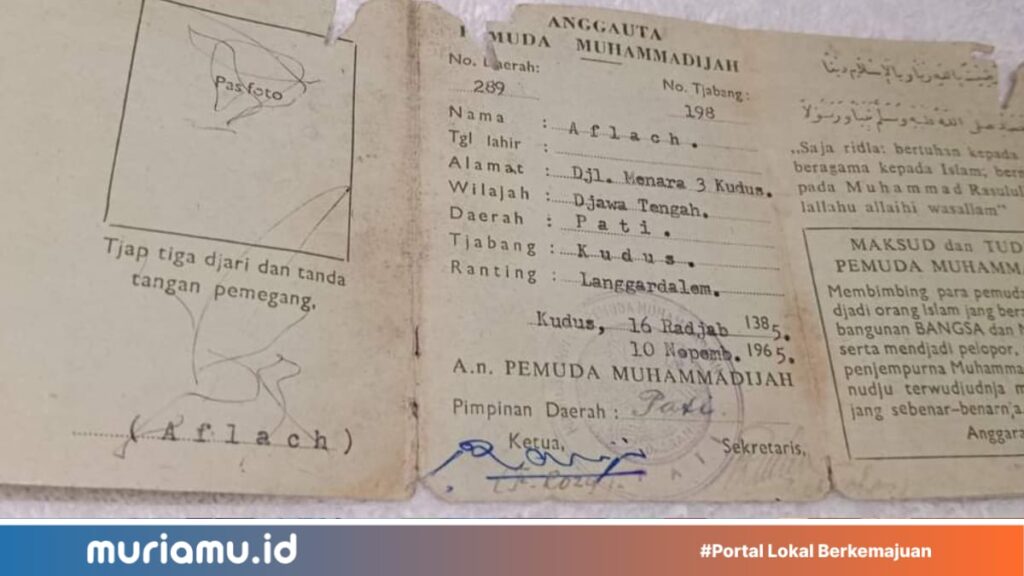 Pas foto
Tjap tiga djari dan tanda
tangan pemegang,
( A f l a c h )
ANGGAUTA
MUDA MUHAMMADIJAH
No. Daerah:
289
No. Tjabang:
198
Nama : A f l a c h .
Tgl lahir :
Alamat : Djl. Menara 3 Kudus.
Wilajah : Djawa Tengah.
Daerah : P a t i .
Tjabang : K u d u s .
Ranting : Langgardalem.
Kudus, 16 Radjab 1385.
10 Nopemb. 1965.
A.n. PEMUDA MUHAMMADIJAH
Pimpinan Daerah : Pati.
Ketua,
Sekretaris,
„Saja ridla: bertuhan kepada
beragama kepada Islam;
pada Muhammad
lallahu allaihi wasallam"
MAKSUD dan
PEMUDA
Membimbing para pemuda
djadi orang Islam jang
bangunan BANGSA dan
serta mendjadi pelopor,
penjempurna
nudju terwudjudnja
jang sebenar-benarnja.
muriamu.id
#Portal Lokal Berkemajuan